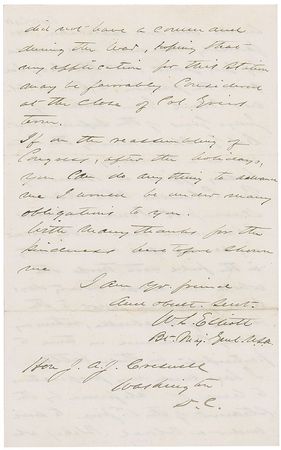 did not have a command
during the War, hoping that
my application for this station
may be favorably Considered
at the Close of Col.
term.
If on the reassembling of
Congress, after the holidays,
you Can do anything to advance
me I would be under many
obligations to you.
With many thanks for the
kindness heretofore shown
me
I am yr. friend
And obedt. Servt.
W. L. Elliott
Bt. Maj. Genl. U.S.A.
Hon J. A. J. Creswell
Washington
D. C.